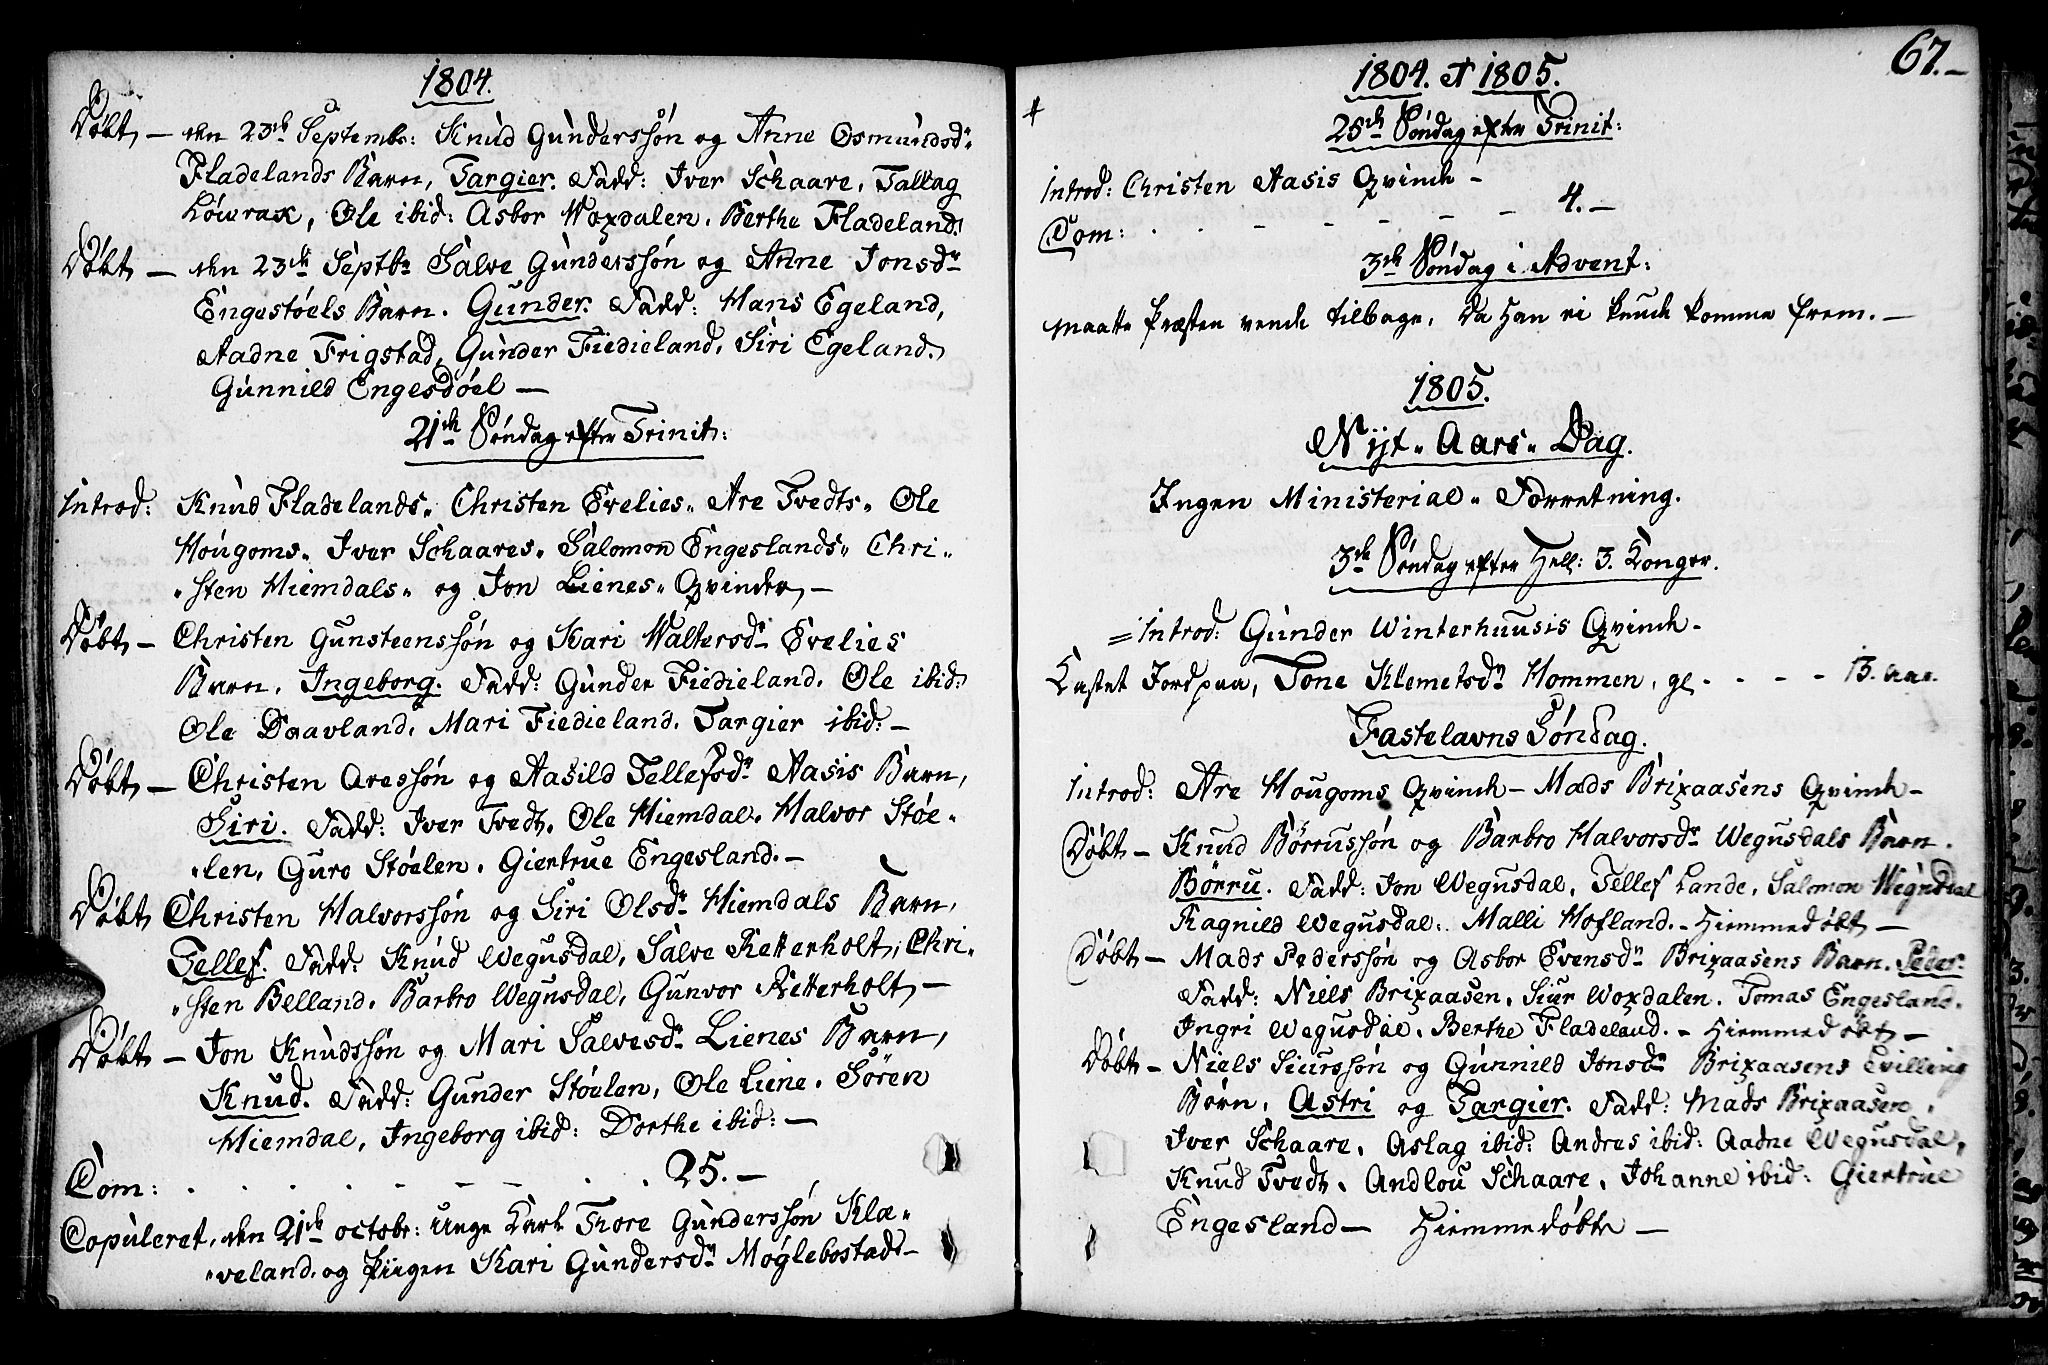 1804.
Døbt — den 23de Septembr: Knud Gunderssøn og Anne Osmundsdr
Fladelands Barn, Targier. Fadd: Iver Schaare, Tallag
Løwrax, Ole ibid: Asbor Woxdalen. Berthe Fladeland.
Døbt — den 23de Septbr Salve Gunderssøn og Anne Jonsdr
Engestøels Barn. Gunder. Fadd: Hans Egeland,
Aadne Frigstad, Gunder Fiedieland, Siri Egeland.
Gunnild Engesdøel —
21de Søndag efter Trinit:
Introd: Knud Fladelands, Christen Evelies, Are Tvedts, Ole
Hougoms, Iver Schaares, Salomon Engeslands, Chri-
sten Hiemdals, og Jon Lienes, Qvinder —
Døbt — Christen Gunsteenssøn og Kari Waltersdr Evelies
Barn, Ingeborg. Fadd: Gunder Fiedieland. Ole ibid:
Ole Daavland. Mari Fiedieland. Targier ibid: —
Døbt — Christen Aressøn og Aasild Tellefsdr Aasis Barn,
Siri. Fadd: Iver Tvedt, Ole Hiemdal. Halvor Støe-
len, Guro Støelen. Giertrue Engesland. —
Døbt Christen Halvorssøn og Siri Olsdr Hiemdals Barn,
Tellef. Fadd: Knud Wegusdal, Salve Retterholt, Chri-
sten Belland. Barbro Wegusdal, Gunvor Retterholt —
Døbt — Jon Knudssøn og Mari Salvesdr Lienes Barn,
Knud. Fadd: Gunder Støelen, Ole Liene. Sören
Hiemdal, Ingeborg ibid: Dorthe ibid: —
Com: . . . . . . 25. —
Copuleret, den 21de octobr: Unge Karl Thore Gunderssøn Kla-
veland. og Piigen Kari Gundersdr Møglebostad —
67. —
1804. et 1805.
25de Søndag efter Trinit:
Introd: Christen Aasis Qvinde —
Com: . . . . . 4. —
3de Søndag i Advent:
maatte Præsten vende tilbage, da han ei kunde komme frem. —
1805.
Nyt Aars Dag.
Ingen Ministerial Forretning.
3de Søndag efter Hell: 3. Konger.
Introd: Gunder Winterhuusis Qvinde —
Kastet Jord paa, Tone Klemetsdr Hommen, gl . . . . 13. aar.
Fastelavns Søndag.
Introd: Are Hougoms Qvinde — Mads Brixaasens Qvinde —
Døbt — Knud Børrussøn og Barbro Halvorsdr Wegusdals Barn.
Børru. Fadd: Jon Wegusdal, Tellef Lande, Salomon Wegusdal
Ragnild Wegusdal. Malli Hofland. — Hiemmedøbt —
Døbt — Mads Pederssøn og Asbor Evensdr Brixaasens Barn. Peder.
Fadd: Niels Brixaasen, Siur Woxdalen. Tomas Engesland.
Ingri Wegusdal. Berthe Fladeland. — Hiemmedøbt —
Døbt — Niels Siurssøn og Gunnild Jonsdr Brixaasens Tvilling
Børn, Astri og Targier. Fadd: Mads Brixaasen,
Iver Schaare, Aslag ibid: Andres ibid: Aadne Wegusdal,
Knud Tvedt, Andlou Schaare, Johanne ibid: Giertrue
Engesland — Hiemmedøbte —